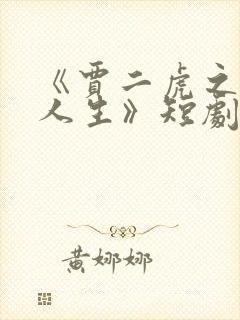 《贾二虎之
人生》短剧
黄娜娜